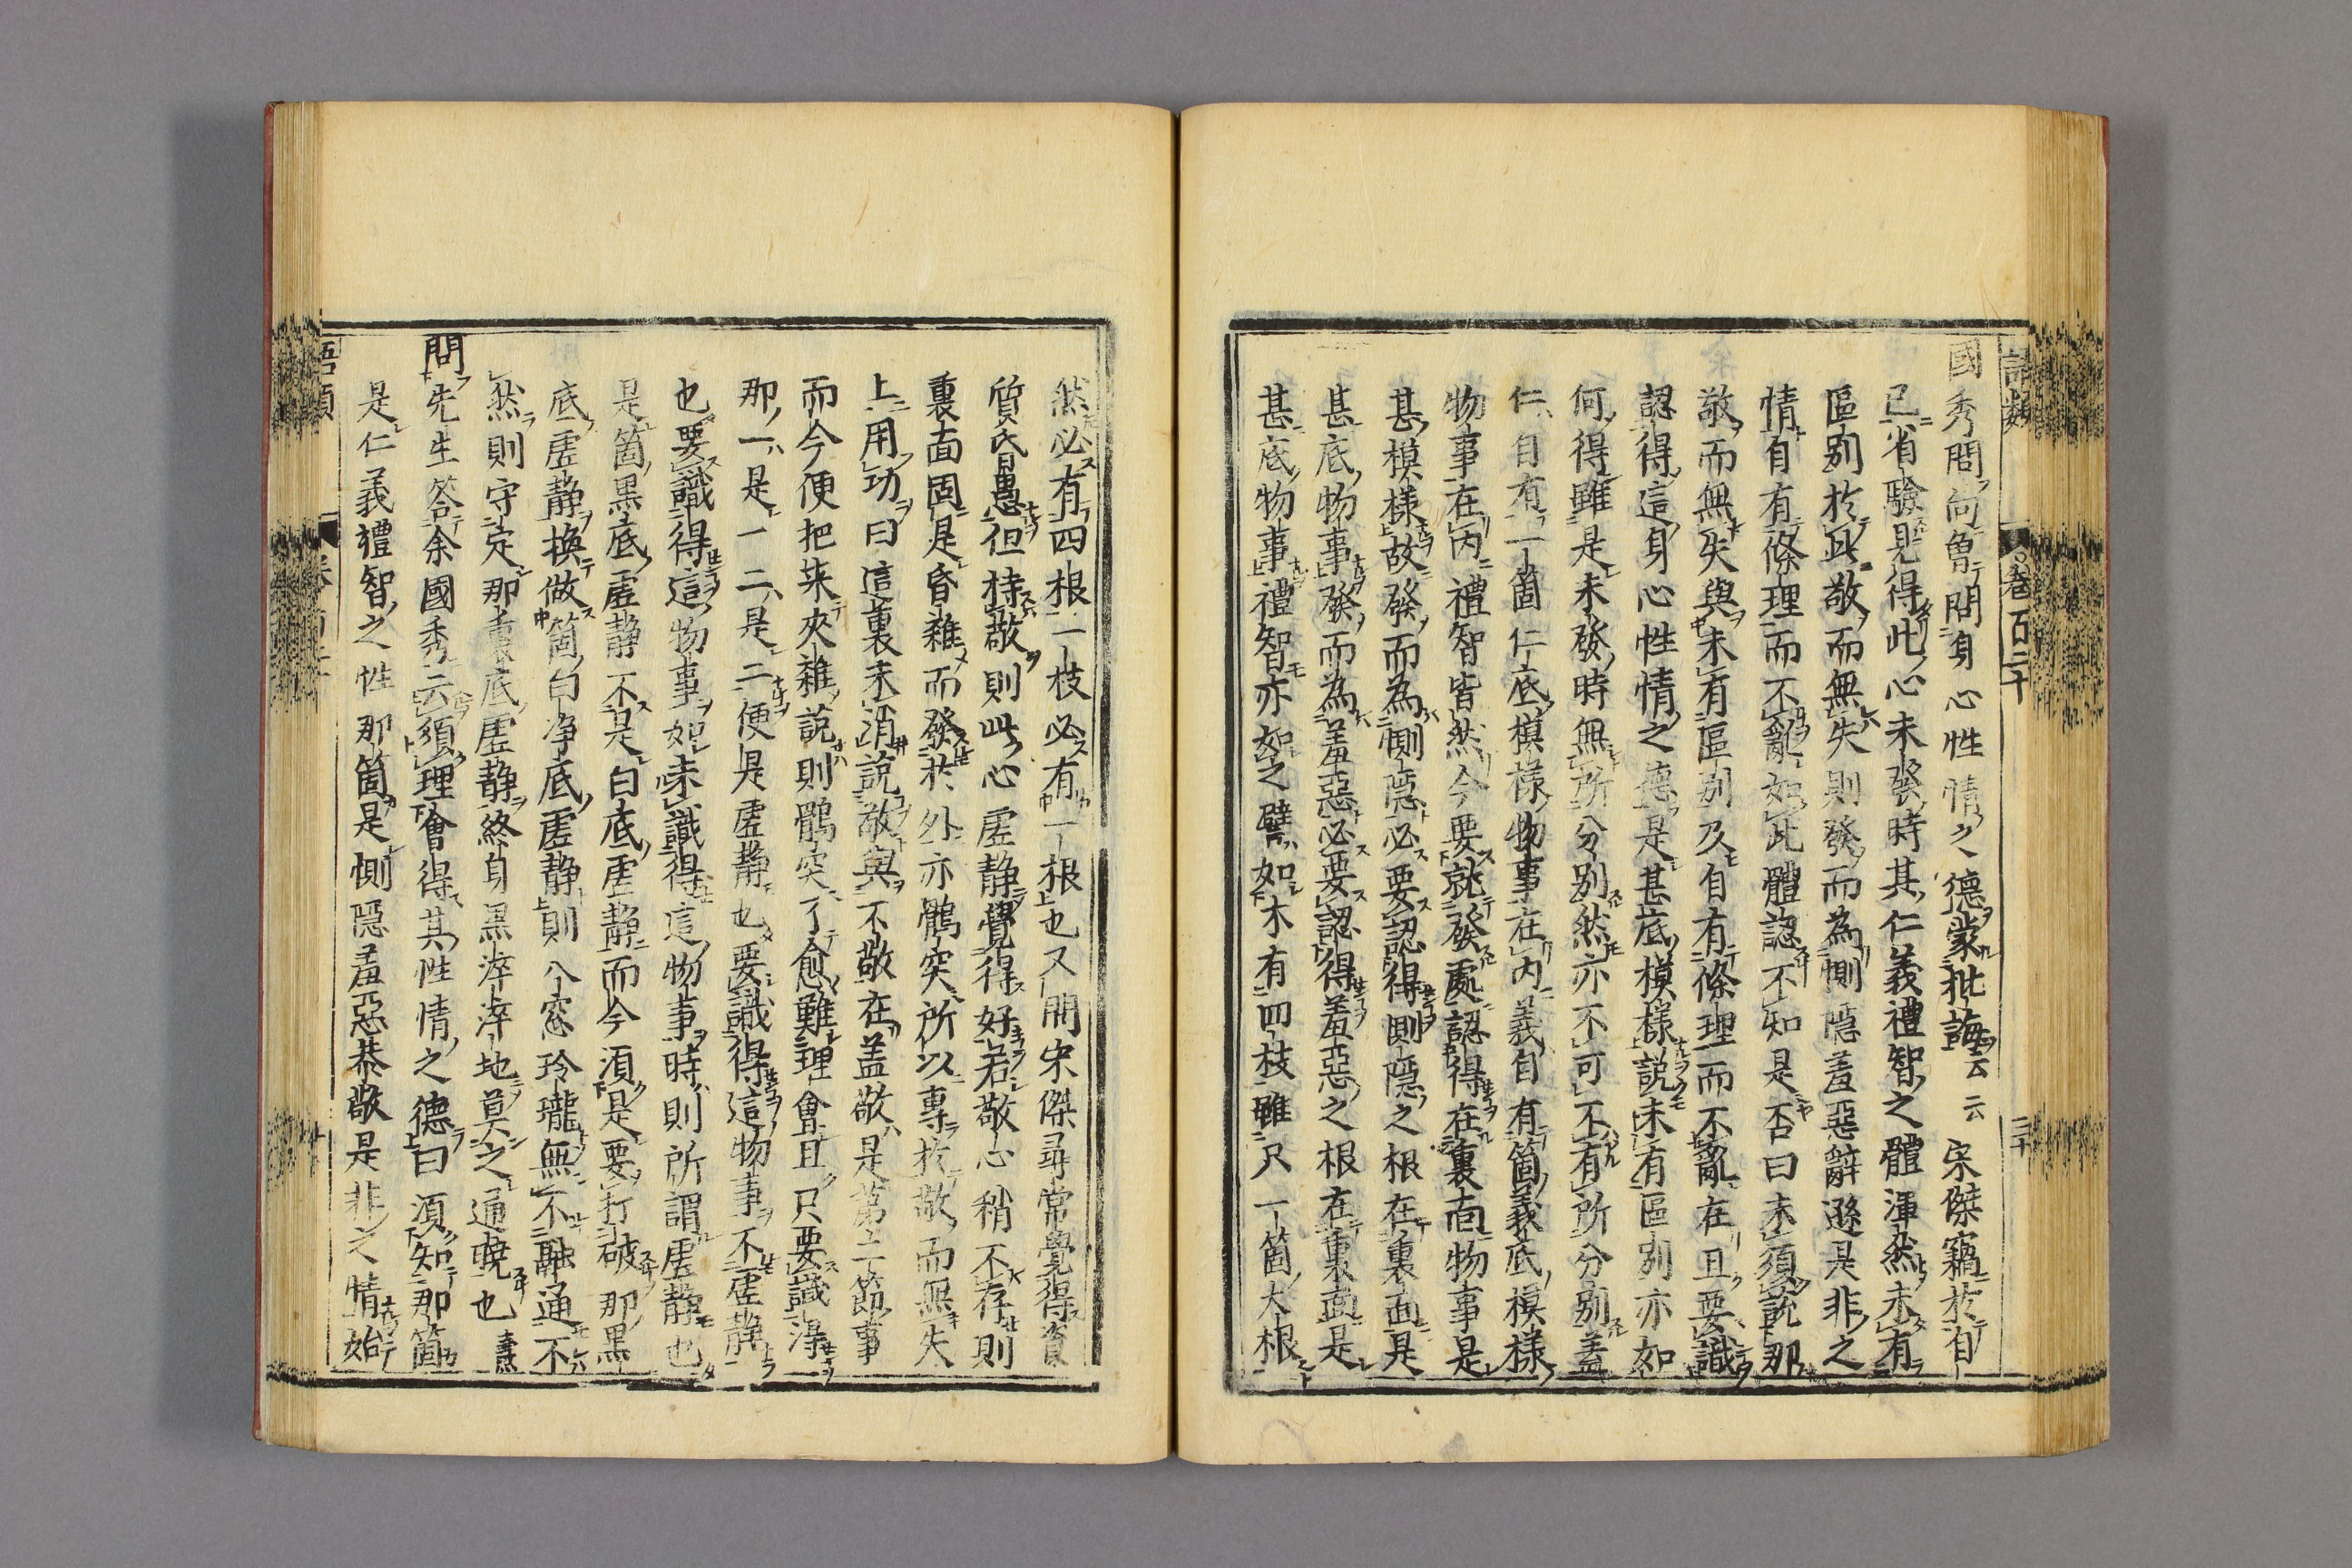 語類
卷百二十
三十
國秀問向曾問身心性情之德蒙批誨云云宋傑竊於自
己省驗見得此心未發時其仁義禮智之體渾然未有
區別於此敬而無失則發而為惻隱羞惡辭遜是非之
情自有條理而不亂如此體認不知是否曰未須説那
敬而無失與未有區別及自有條理而不亂在且要識
認得這身心性情之德是甚底模様説未有區別亦如
何得雖是未發時無所分別然亦不可不有所分別盖
仁自有一箇仁底模様物事在内義自有箇義底模様
物事在内禮智皆然今要就發處認得在裏面物事是
甚模様故發而為惻隱必要認得惻隱之根在裏面是
甚底物事發而為羞惡必要認得羞惡之根在裏面是
甚底物事禮智亦如之譬如木有四枝雖只一箇大根
然必有四根一枝必有一根也又問宋傑尋常覺得資
質昏愚但持敬則此心虚静覺得好若敬心稍不存則
裏面固是昏雜而發於外亦鶻突所以專於敬而無失
上用功曰這裏未消説敬與不敬在盖敬是第二節事
而今便把来夾雜説則鶻突了愈難理會且只要識得
那一是一二是二便是虚静也要識得這物事不虚静
也要識得這物事如未識得這物事時則所謂虚静也
是箇黒底虚静不是白底虚静而今須是要打破那黒
底虚静換做箇白浄底虚静則八窓玲瓏無不融通不
然則守定那裏底虚静終身黒淬淬地莫之通暁也 燾
問先生答余國秀云須理會得其性情之德曰須知那箇
是仁義禮智之性那箇是惻隱羞惡恭敬是非之情始
語類